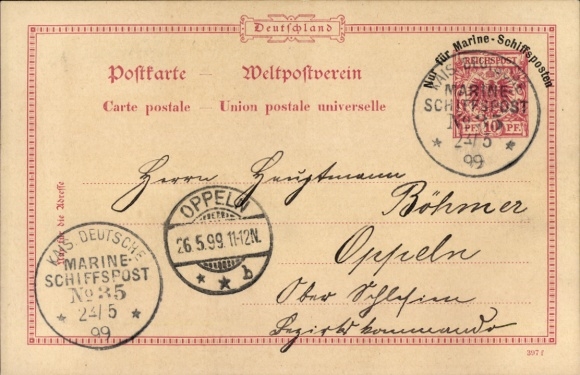 Deutschland
Nur für Marine-Schiffsposten
REICHSPOST
Postkarte — Weltpostverein
Carte postale — Union postale universelle
KAIS. DEUTSCHE
MARINE-
SCHIFFSPOST
No 35
* 24/5 *
99
PF 10 PF.
Nur für die Adresse
Herrn Hauptmann
Böhmer
Oppeln
Ober Schlesien
Bezirkskommando
OPPELN
26.5.99.11-12N.
* * b
KAIS. DEUTSCHE
MARINE-
SCHIFFSPOST
No 35
* 24/5 *
99
397 f